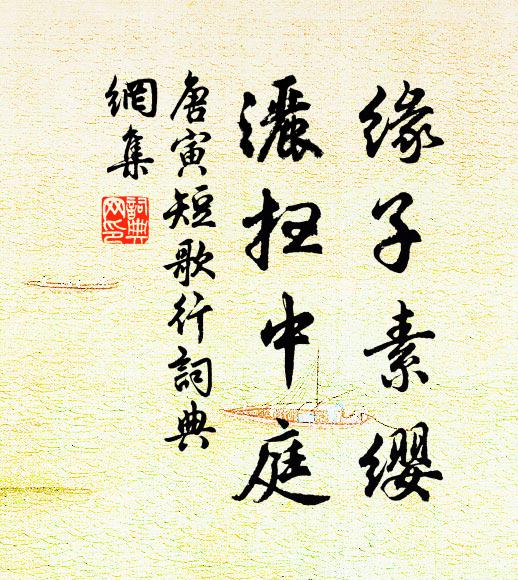 缘子素缨
灑扫中庭
唐寅短歌行詞典
網集
詞典
网印